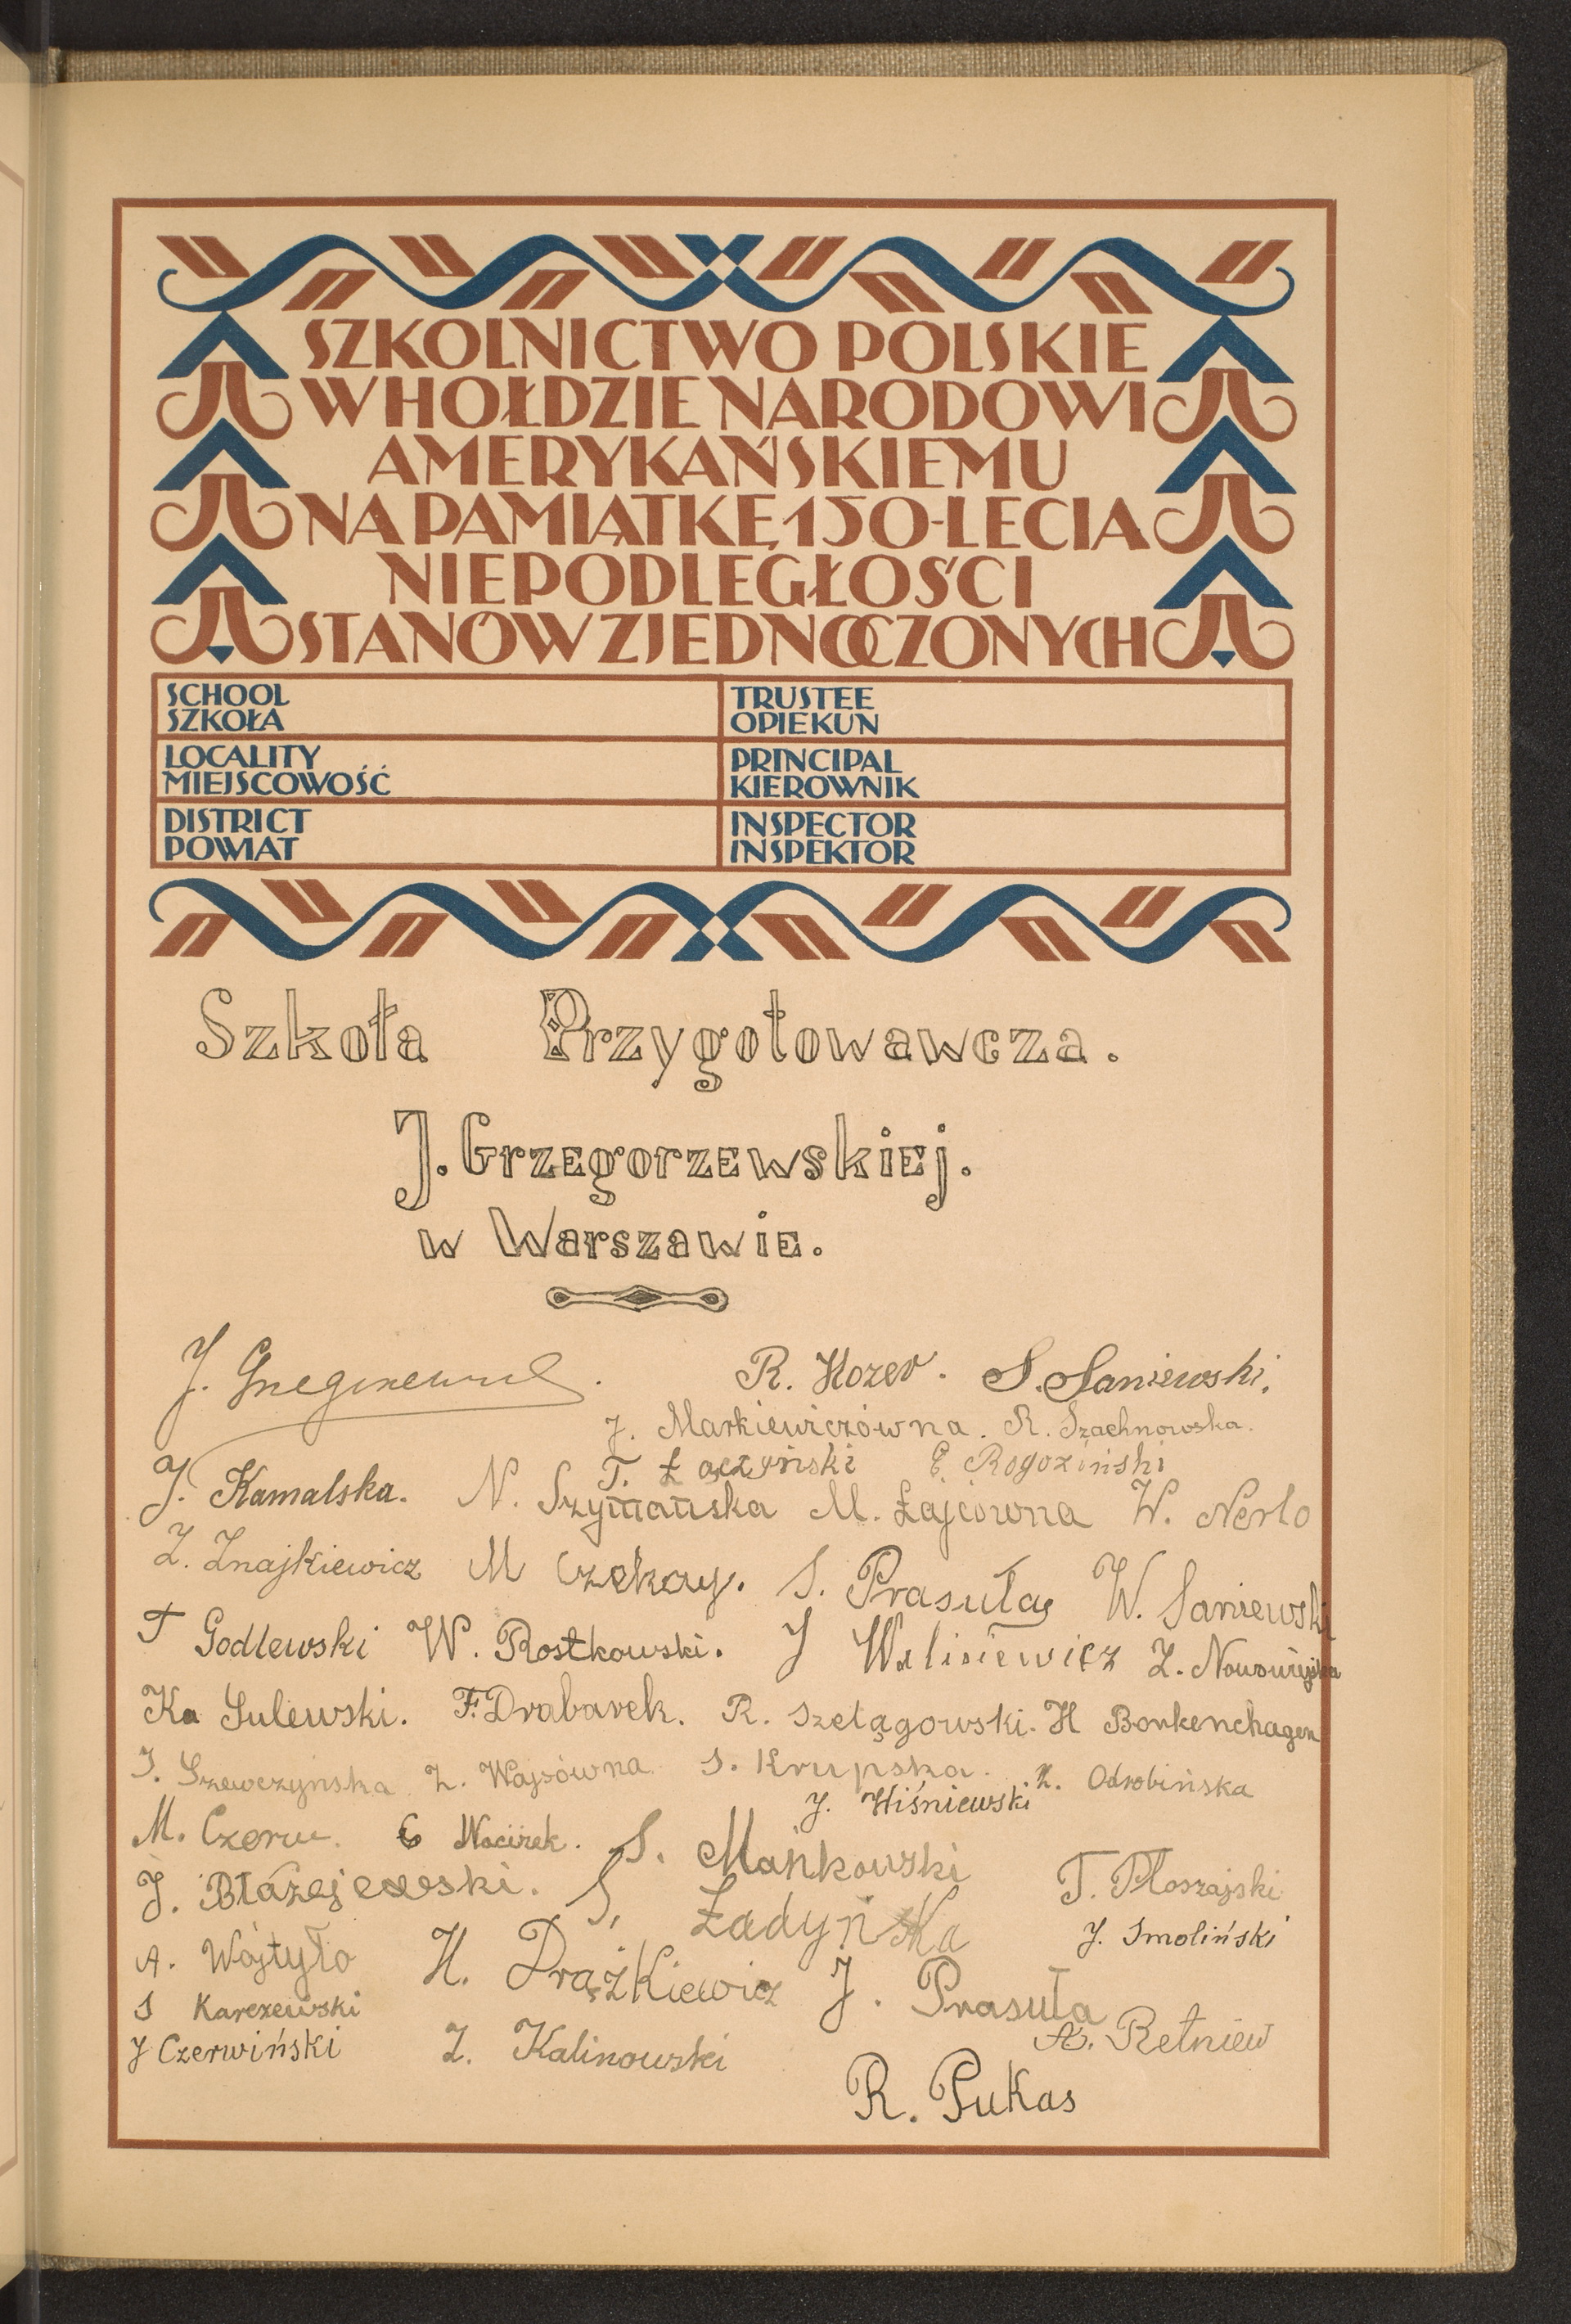 SZKOLNICTWO POLSKIE
W HOŁDZIE NARODOWI
AMERYKAŃSKIEMU
NA PAMIĄTKĘ 150-LECIA
NIEPODLEGŁOŚCI
STANÓW ZJEDNOCZONYCH
SCHOOL
SZKOŁA
TRUSTEE
OPIEKUN
LOCALITY
MIEJSCOWOŚĆ
PRINCIPAL
KIEROWNIK
DISTRICT
POWIAT
INSPECTOR
INSPEKTOR
Szkoła Przygotowawcza.
J. Grzegorzewskiej.
w Warszawie.
J. R. Kozer. S. Saniewski.
J. Markiewiczówna. R. Szachnowska.
T. Łączyński E. Rogoziński
J. Kamalska. N. Szymańska M. Łajcówna W. Nerlo
Z. Znajkiewicz M Czekay. S. Prasuła W. Saniewski
T Godlewski W. Rostkowski. J Walisiewicz Z. Nowowiejska
Ka Sulewski. F. Drabarek. R. Szelągowski. H Borkenchagen
J. Szewczyńska Z. Wajsówna S. Krupska. K. Odrobińska
J. Wiśniewski
M. E Wacirek. S. Mańkowski
J. Błażejewski. S. Ładyńska T. Płoszajski
J. Smoliński
A. Wójtyło H. Drążkiewicz J. Prasuła
S Karczewski A. Retniew
J Czerwiński Z. Kalinowski
R. Pukas